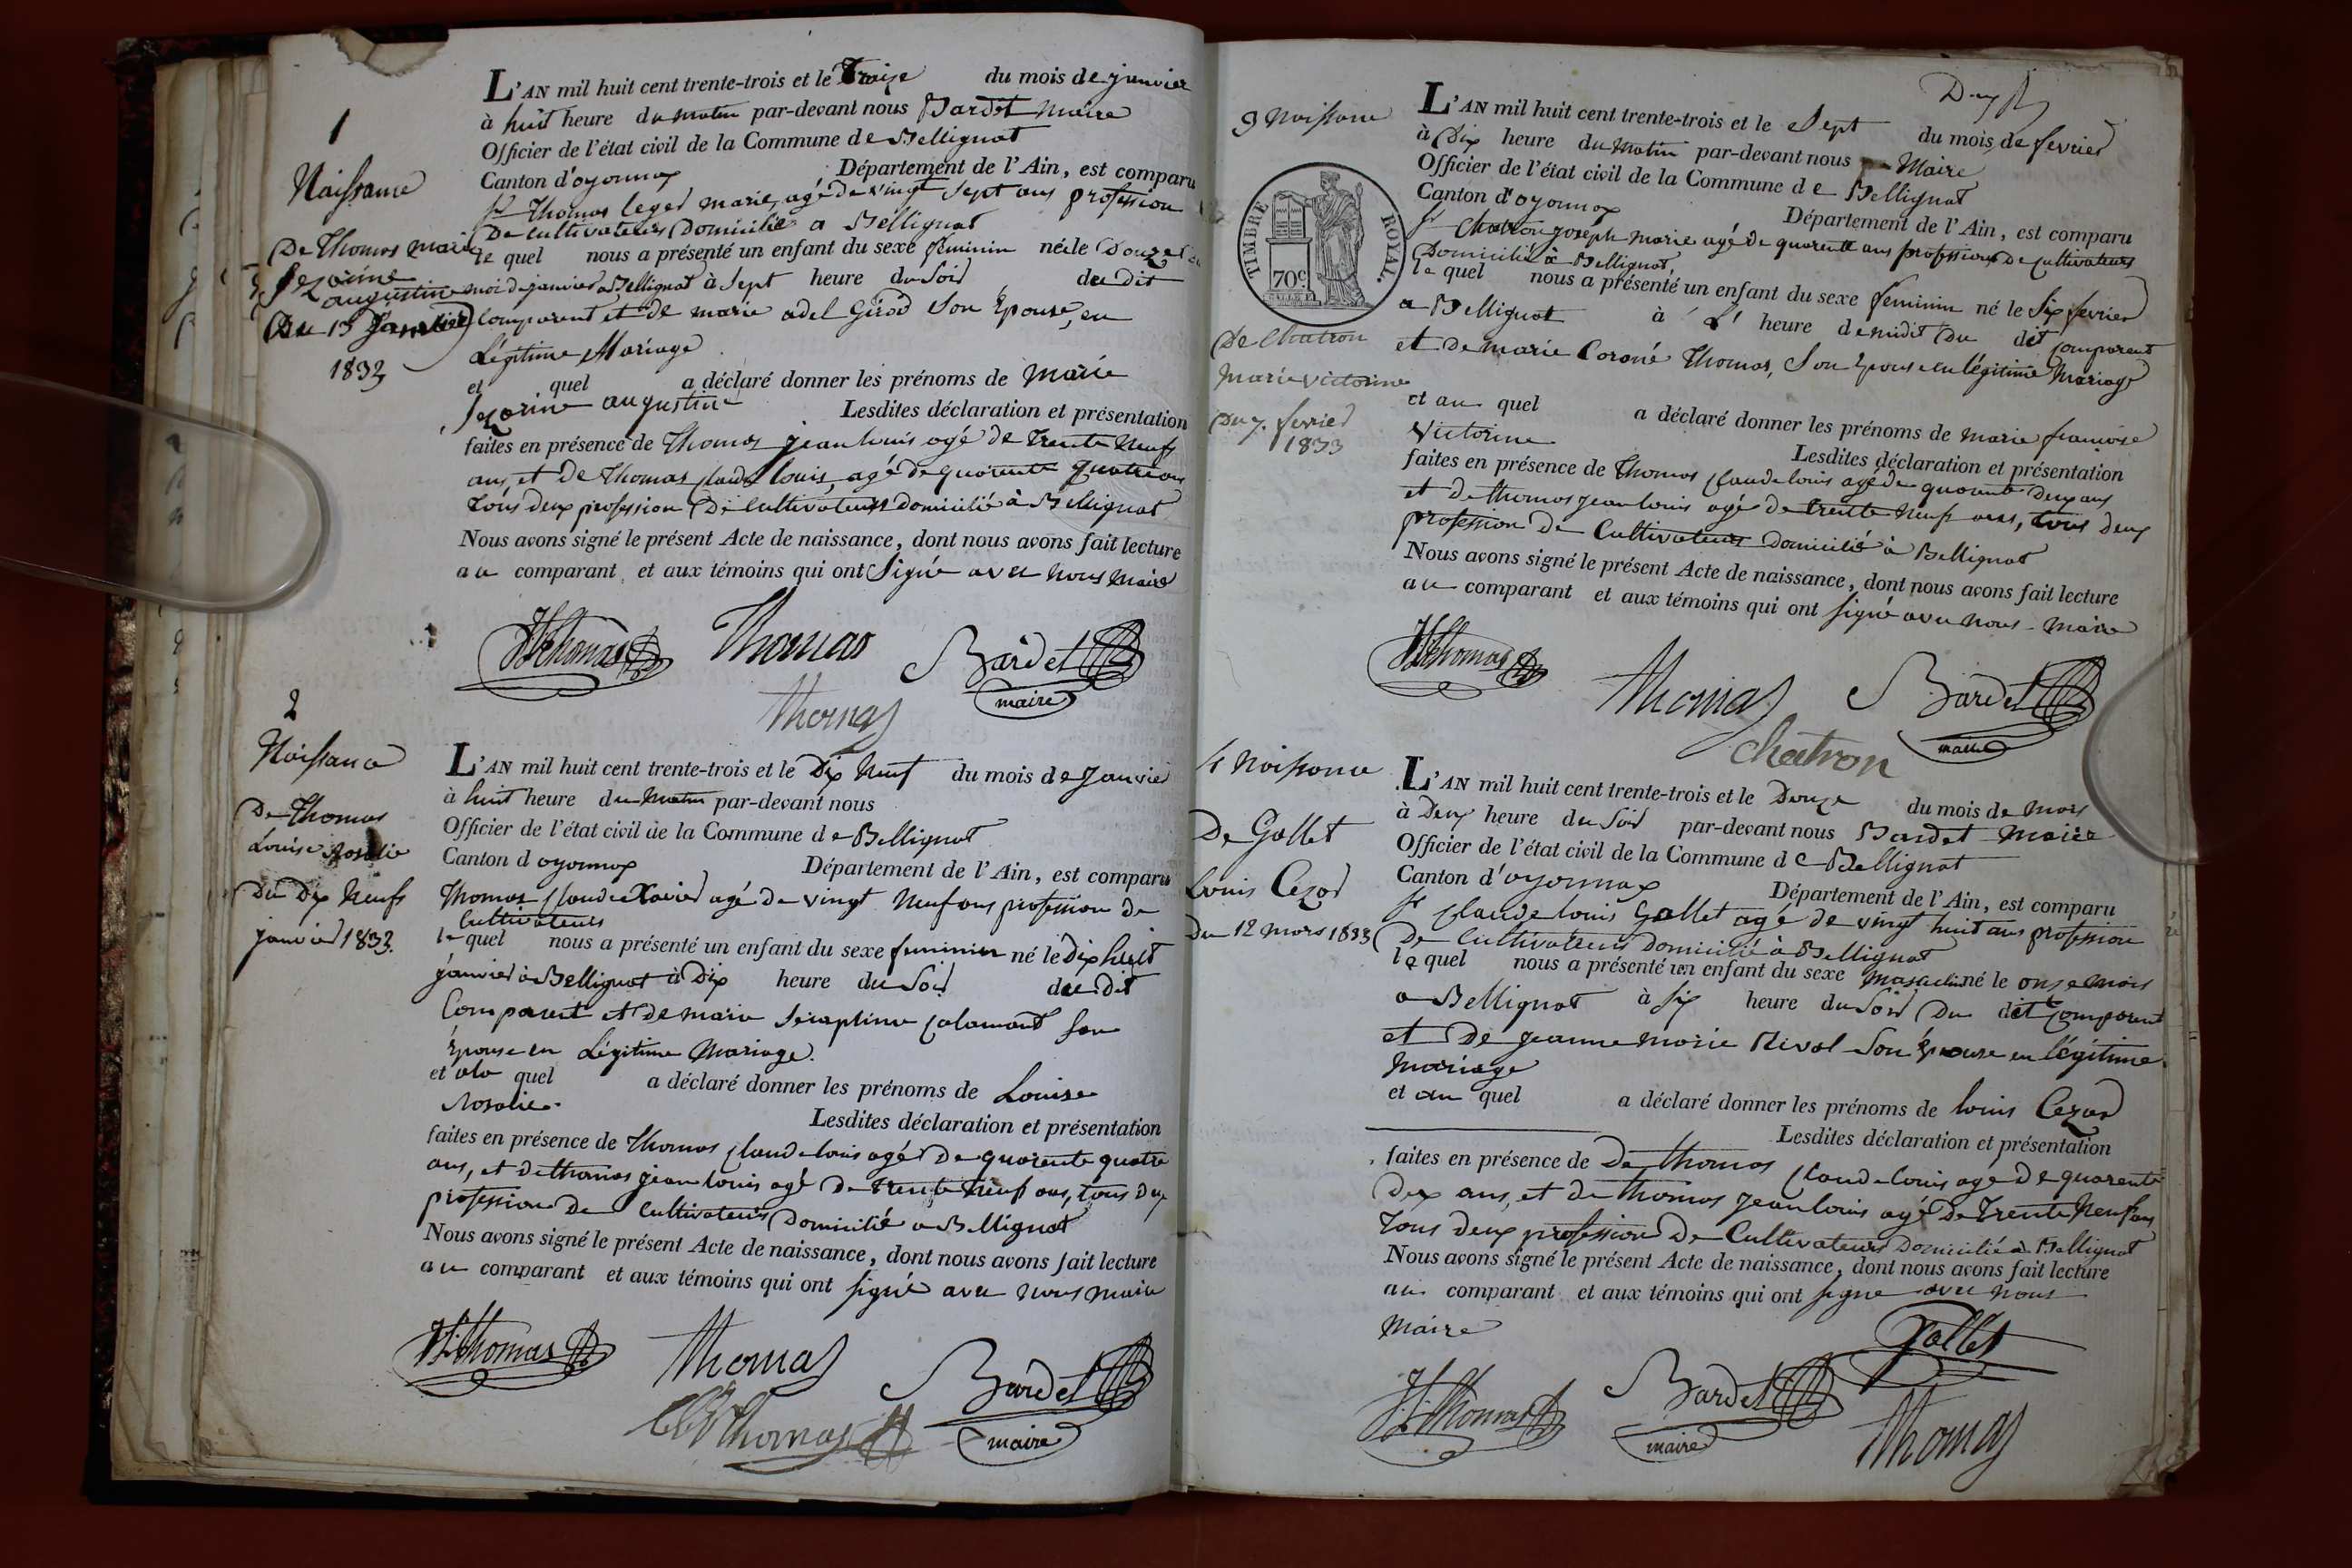 1
Naissance
De Thomas Marie
Sezarine
augustine
Du 13 Janvier
1833
L'AN mil huit cent trente-trois et le Traize du mois de janvier
à huit heure du matin par-devant nous Bardet Maire
Officier de l'état civil de la Commune de Bellignat
Canton d'oyonnax Département de l'Ain, est comparu
Sr Thomas leger marie, agé de vingt sept ans profession
De cultivateurs Domicilié a Bellignat
le quel nous a présenté un enfant du sexe feminin née le Douze du
moi de janvier a Bellignat à Sept heure du Soir du dit
Comparent et de marie adel Girod Son Epouse, en
Légitime Mariage
et quel a déclaré donner les prénoms de Marie
Sezarine augustine Lesdites déclaration et présentation
faites en présence de Thomas jean louis agé de Trente Neuf
ans, et De Thomas Claude louis, agé de quarente quatre ans
Tous deux profession De Cultivateurs domicilié à Bellignat
Nous avons signé le présent Acte de naissance, dont nous avons fait lecture
au comparant et aux témoins qui ont Signé avec nous Maire
JLThomas Thomas Bardet
maire
Thomas
2
Naissance
De Thomas
Louise Rosalie
Du Dix Neufs
janvier 1833.
L'AN mil huit cent trente-trois et le Dix Neuf du mois de Janvier
à huit heure du Matin par-devant nous
Officier de l'état civil de la Commune de Bellignat
Canton d oyonnax Département de l'Ain, est comparu
Thomas Claude Xavier agé de vingt Neuf ans profession de
Cultivateurs
le quel nous a présenté un enfant du sexe feminin né le dix huit
janvier à Bellignat à Dix heure du Soir du dit
Comparent et De marie Seraphine Calamant Son
Epouse en Légitime Mariage.
et ala quel a déclaré donner les prénoms de Louise
Rosalie. Lesdites déclaration et présentation
faites en présence de Thomas Claude louis agé De quarente quatre
ans, et de thomas jean louis agé De Trente Neuf ans, tous deux
profession de Cultivateurs Domicilié a Bellignat
Nous avons signé le présent Acte de naissance, dont nous avons fait lecture
au comparant et aux témoins qui ont signé avec nous Maire
JLThomas Thomas Bardet
maire
Thomas
3 Naissance
TIMBRE ROYAL.
70c.
De Chatron
Marie victorine
Du 7. fevrier
1833
L'AN mil huit cent trente-trois et le Sept du mois de fevrier
à Dix heure du Matin par-devant nous Maire
Officier de l'état civil de la Commune de Bellignat
Canton d'oyonnax Département de l'Ain, est comparu
Sr Chatron joseph marie agé de quarente ans profession De Cultivateurs
Domicilié à Bellignat,
le quel nous a présenté un enfant du sexe feminin né le Six fevrier
a Bellignat à L' heure de midit Du dit Comparent
et de marie Coroné Thomas, Son Epouse en légitime Mariage
et au quel a déclaré donner les prénoms de marie francoise
Victorine Lesdites déclaration et présentation
faites en présence de Thomas Claude louis agé de quarente Deux ans
et de thomas jean louis agé de trente Neuf ans, tous deux
profession De Cultivateurs Domicilié à Bellignat
Nous avons signé le présent Acte de naissance, dont nous avons fait lecture
au comparant et aux témoins qui ont signé avec nous Maire
JLThomas Thomas Bardet
maire
Chatron
4 Naissance
De Gallet
Louis Cezar
Du 12 Mars 1833
L'AN mil huit cent trente-trois et le Douze du mois de Mars
à Deux heure du Soir par-devant nous Bardet Maire
Officier de l'état civil de la Commune de Bellignat
Canton d'oyonnax Département de l'Ain, est comparu
Sr Claude louis Gallet agé de vingt huit ans profession
De Cultivateurs Domicilié à Bellignat
le quel nous a présenté un enfant du sexe masculin né le onze mars
a Bellignat à Six heure du Soir Du dit Comparent
et De jeanne marie Rival Son Epouse en légitime
Mariage
et au quel a déclaré donner les prénoms de louis Cezar
Lesdites déclaration et présentation
faites en présence de De thomas Claude louis agé de quarente
Dex ans, et de thomas jean louis agé De Trente Neuf ans
Tous deux profession De Cultivateurs Domicilié à Bellignat
Nous avons signé le présent Acte de naissance, dont nous avons fait lecture
au comparant et aux témoins qui ont signé avec nous
Maire
Gallet
JLThomas Bardet
maire
Thomas